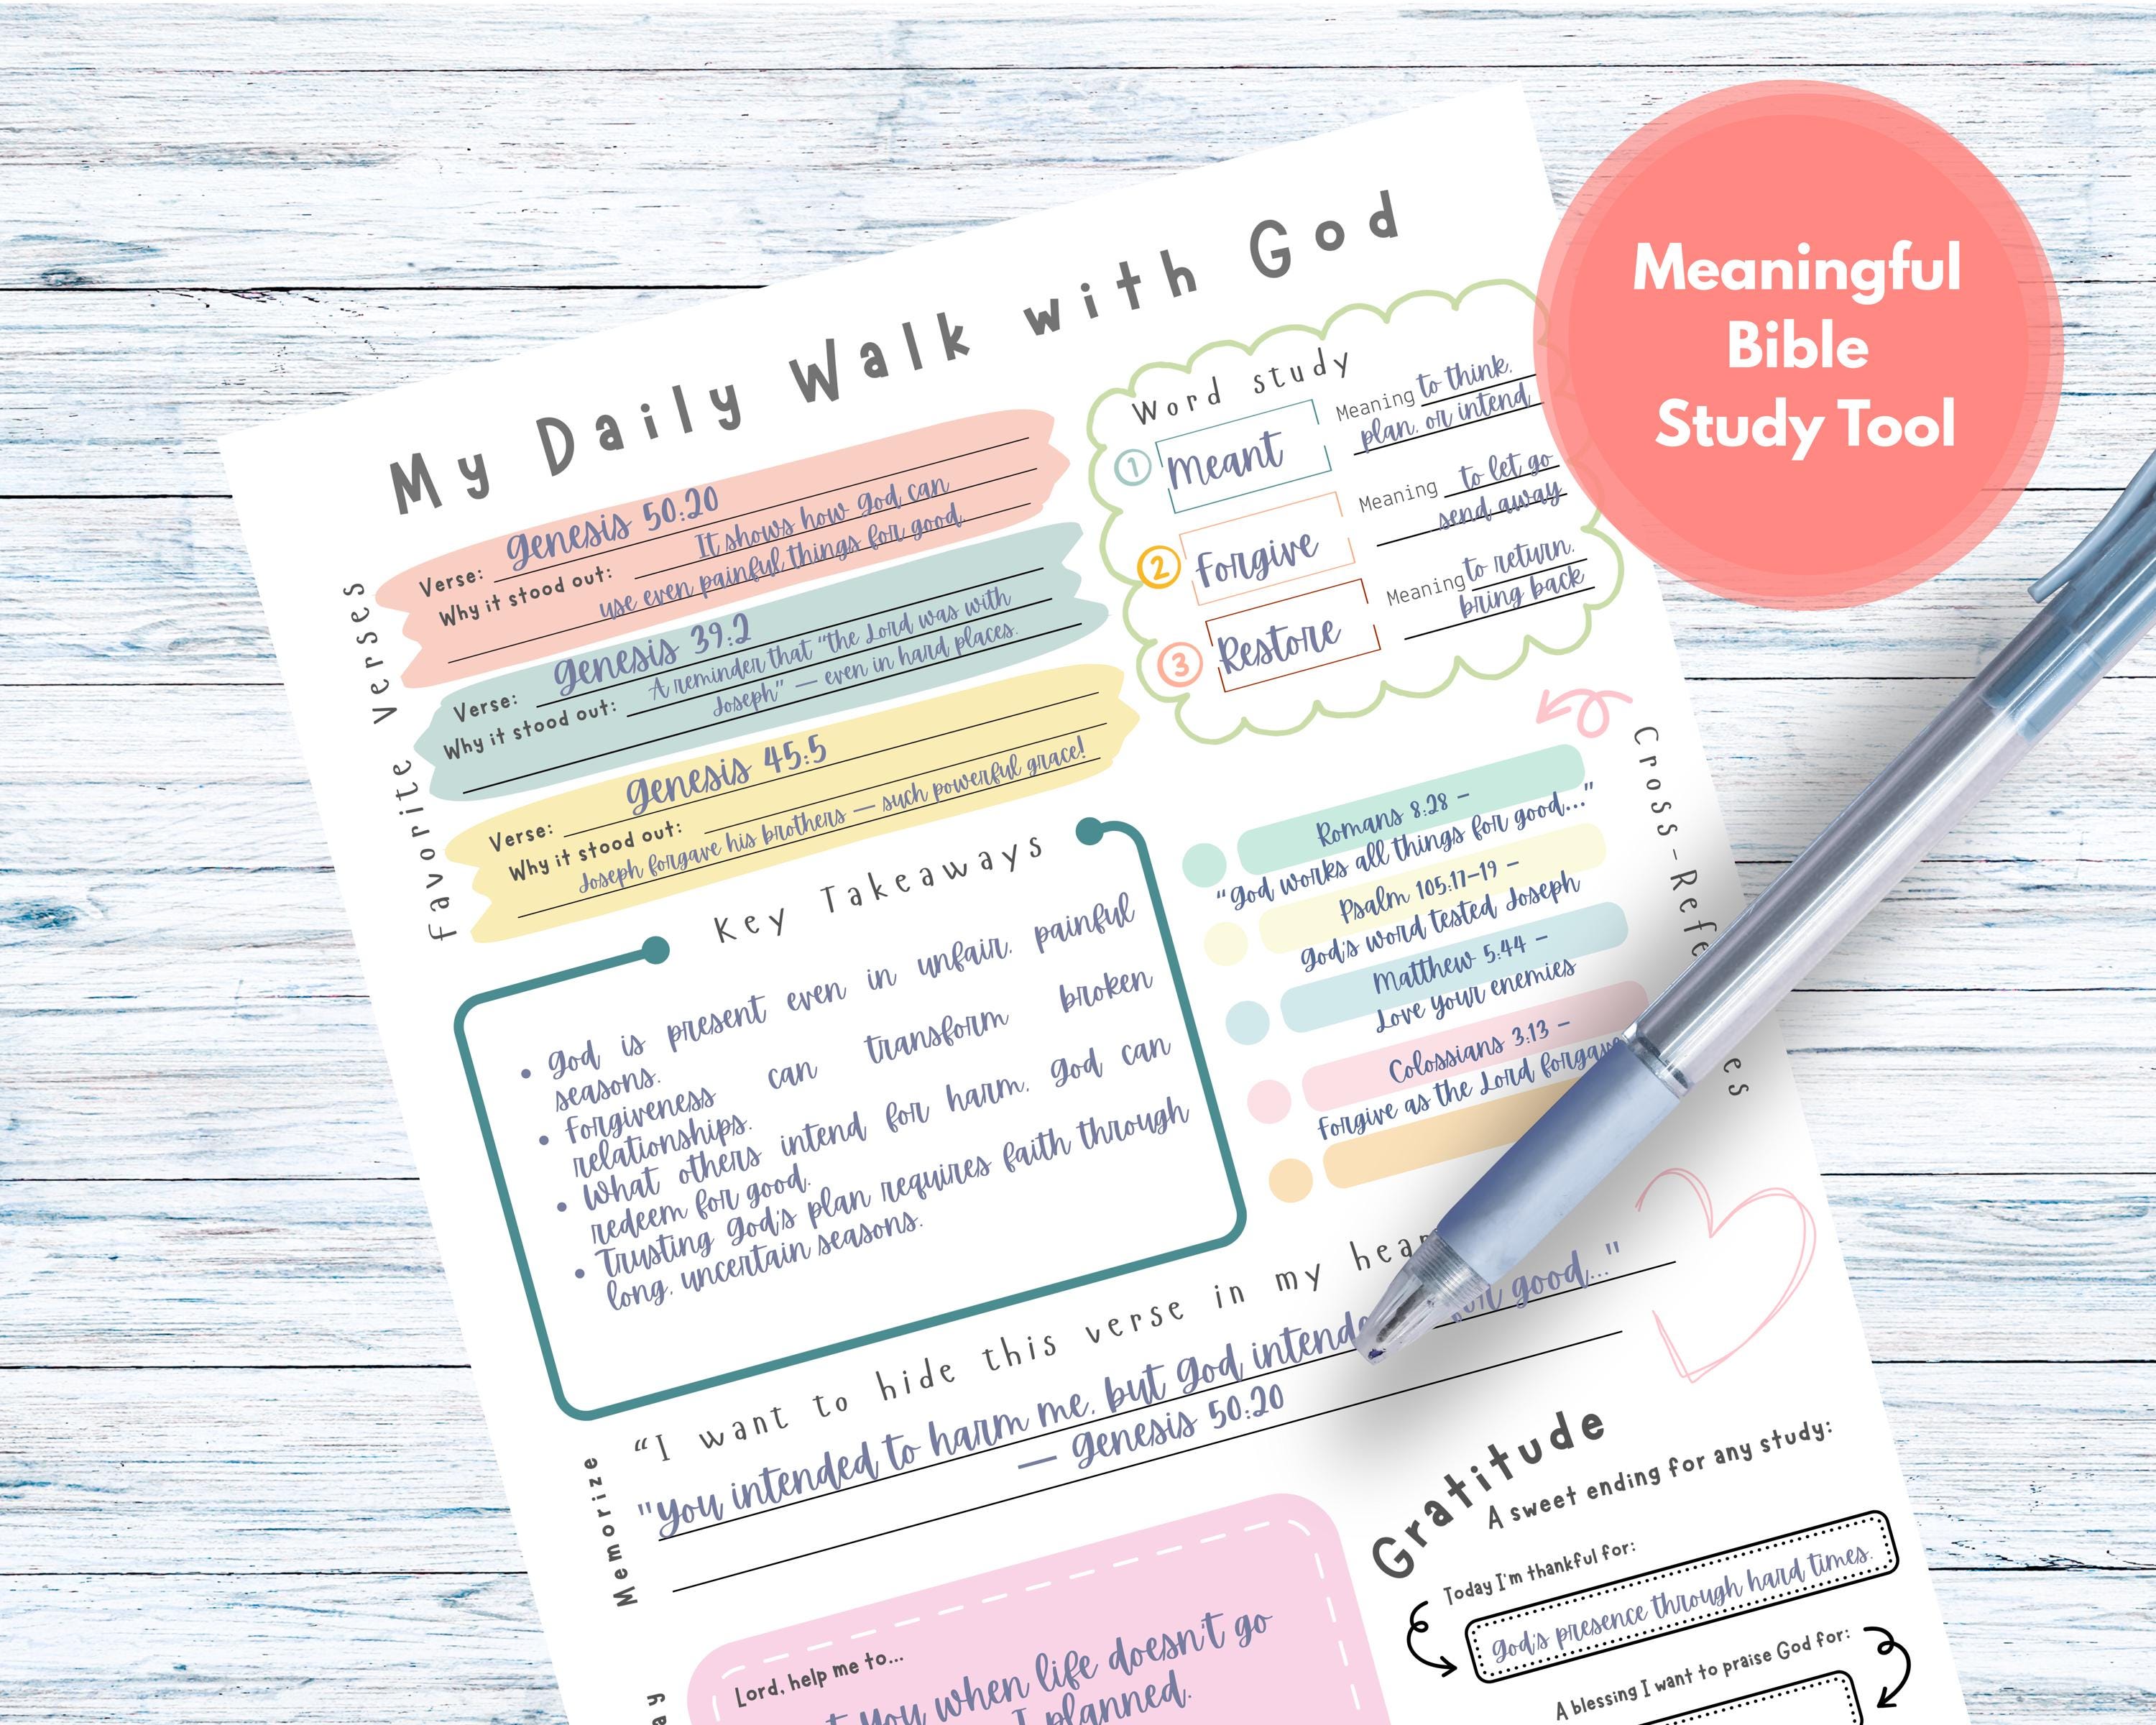 My Daily Walk with God
Favorite Verses
Verse: Genesis 50:20
Why it stood out: It shows how God can
use even painful things for good.
Verse: Genesis 39:2
Why it stood out: A reminder that "the Lord was with
Joseph" — even in hard places.
Verse: Genesis 45:5
Why it stood out:
Joseph forgave his brothers — such powerful grace!
Word study
1 Meant
Meaning to think,
plan, or intend
2 Forgive
Meaning to let go
send away
3 Restore
Meaning to return,
bring back
Meaningful
Bible
Study Tool
Cross-Refe es
Romans 8:28 –
"God works all things for good..."
Psalm 105:17–19 –
God's word tested Joseph
Matthew 5:44 –
Love your enemies
Colossians 3:13 –
Forgive as the Lord forgave
Key Takeaways
• God is present even in unfair, painful
seasons.
• Forgiveness can transform broken
relationships.
• What others intend for harm, God can
redeem for good.
• Trusting God's plan requires faith through
long, uncertain seasons.
Memorize
"I want to hide this verse in my hear
"You intended to harm me, but God intende for good..."
— Genesis 50:20
Lord, help me to...
you when life doesn't go
I planned.
Gratitude
A sweet ending for any study:
Today I'm thankful for:
God's presence through hard times.
A blessing I want to praise God for: